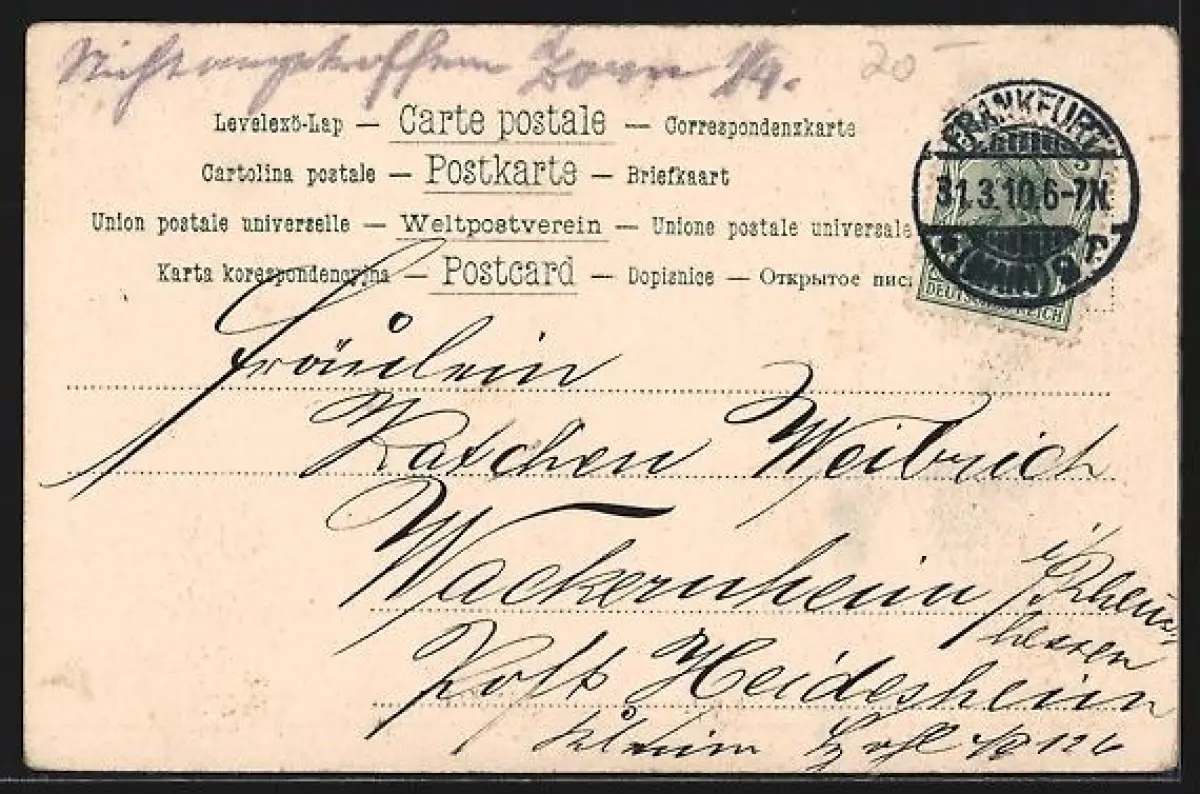 Nicht angetroffen Zorn 1/4.
20
Levelexö-Lap — Carte postale — Correspondenzkarte
Cartolina postale — Postkarte — Briefkaart
Union postale universelle — Weltpostverein — Unione postale universale
Karta korespondencyjna — Postcard — Dopisnice — Открытое пись
FRANKFURT
31.3.10.6-7N.
* (MAIN) 9 f.
DEUTSCHES REICH
Fräulein
Kätchen Weibrich
Wackernheim i/Rhein-
hessen
Post Heidesheim